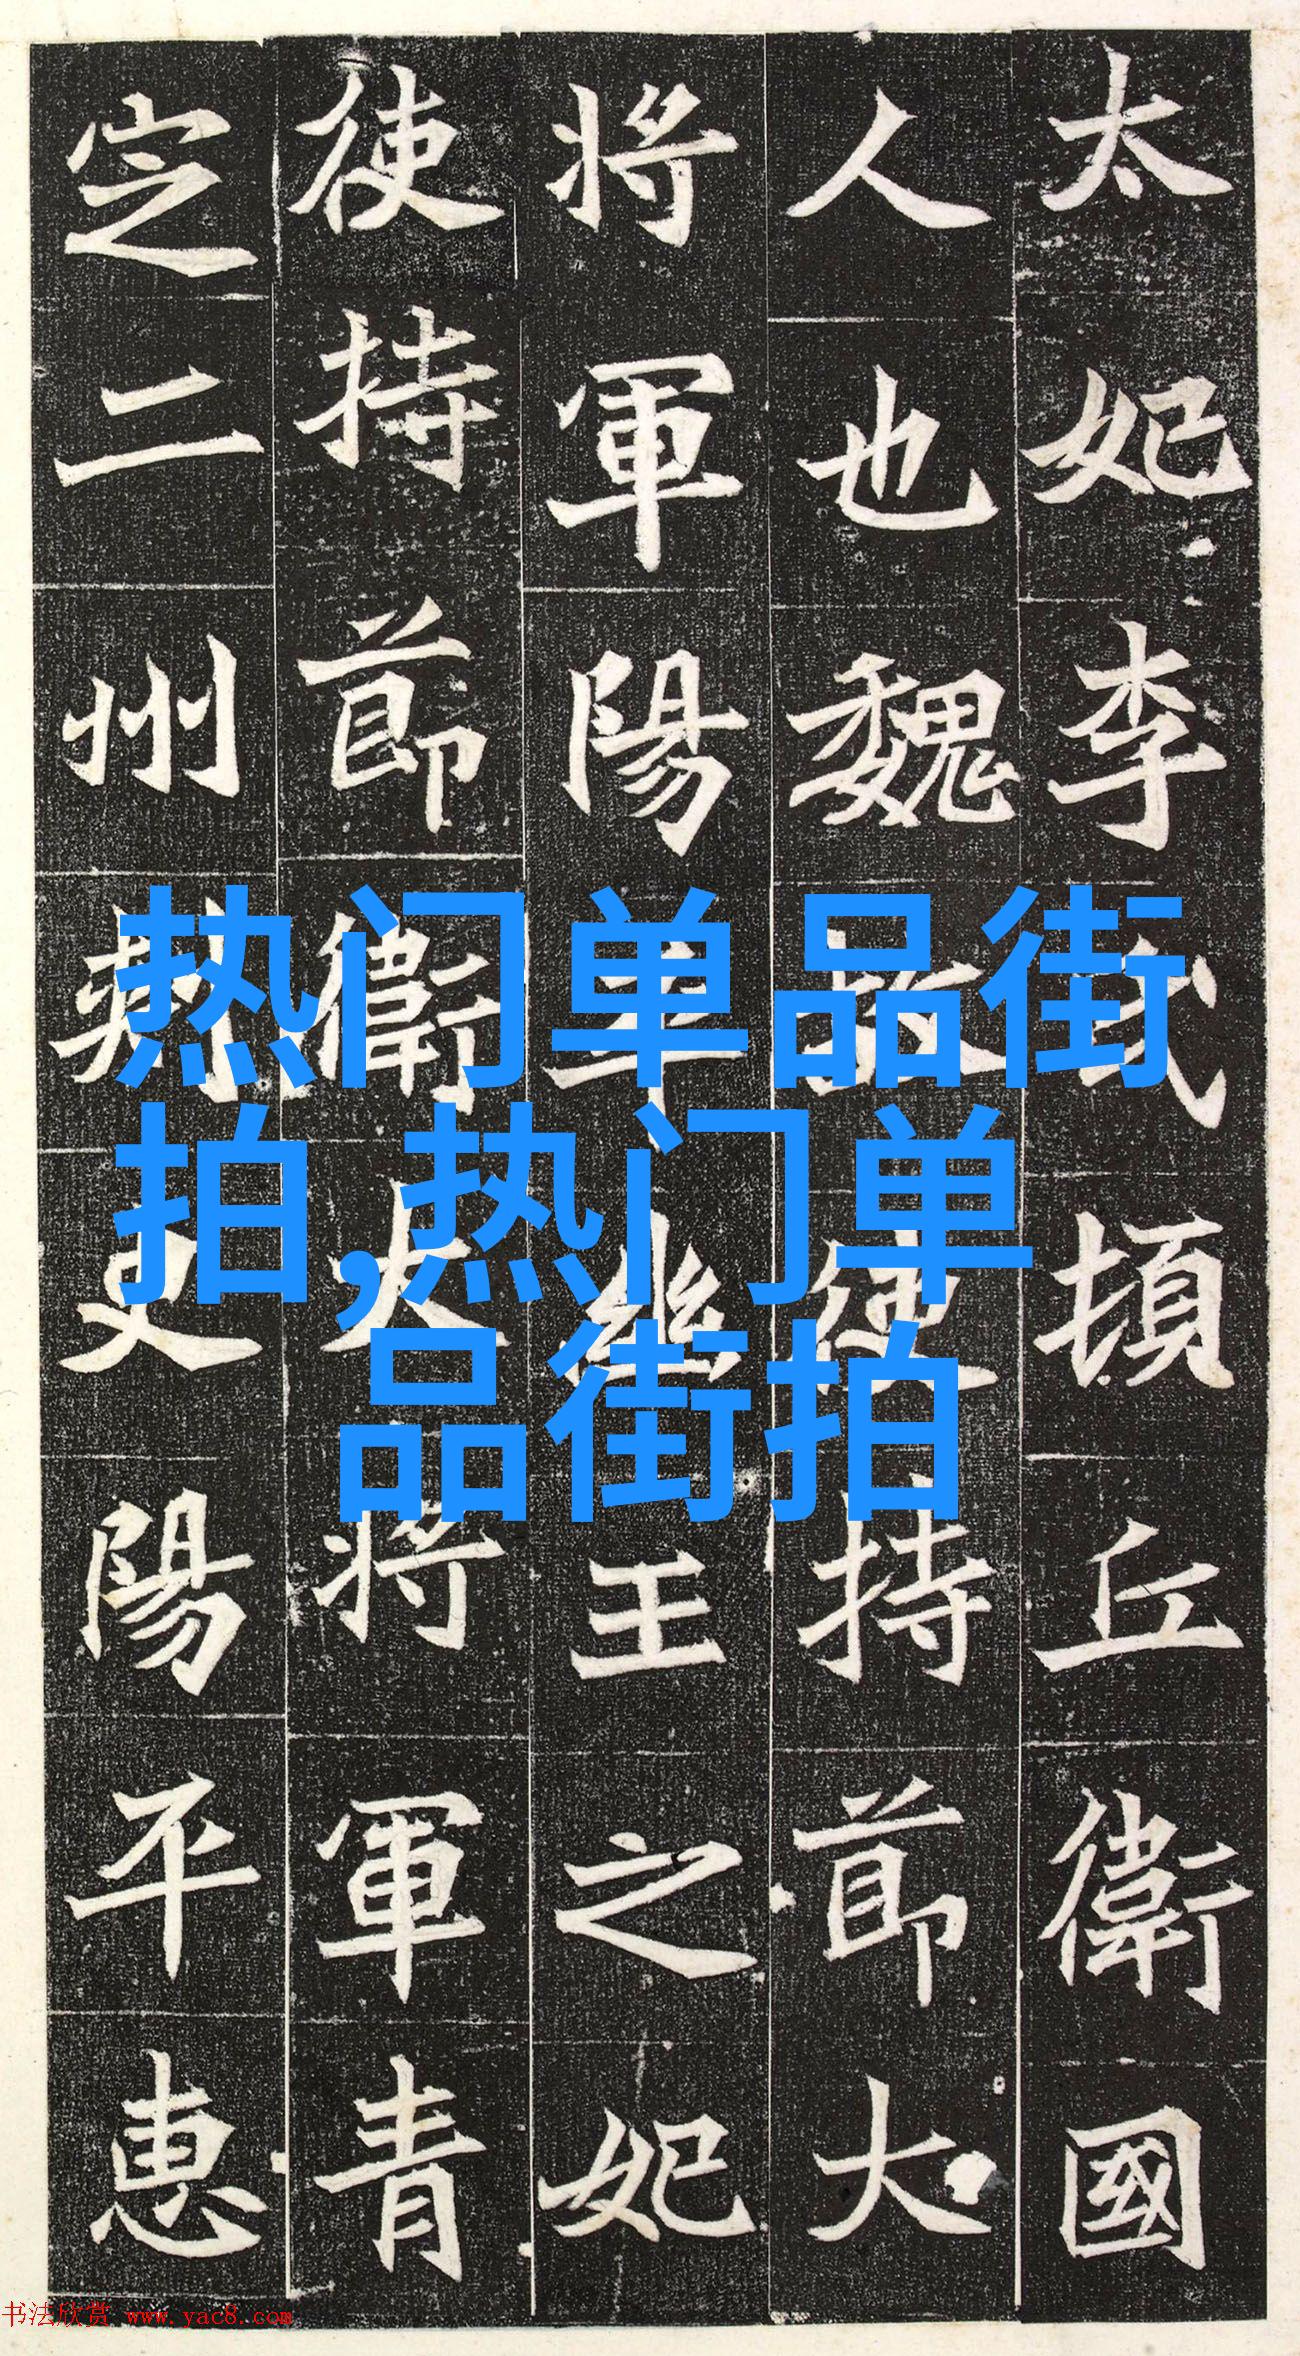 太妃李氏頓丘衛國
人也魏故使持節大
將軍陽平幽王之妃
使持節衛大將軍青
定二州刺史陽平惠
热门单品街
拍,热门单
品街拍
书法欣赏 www.yac8.com